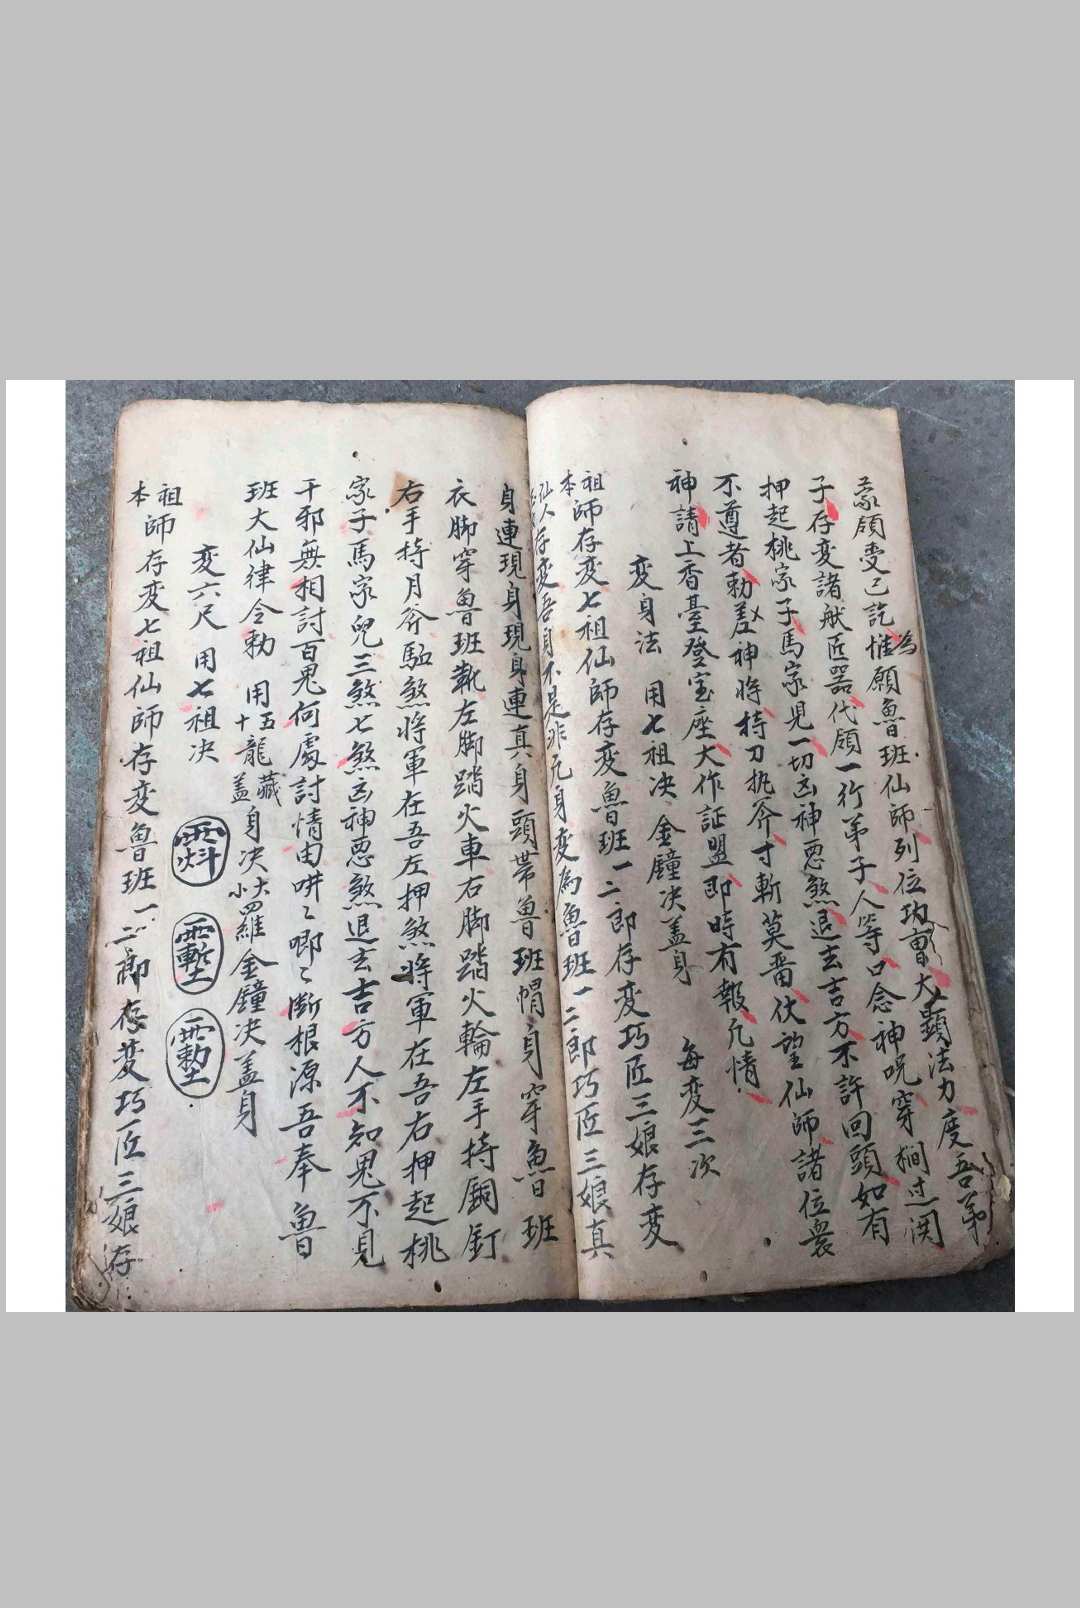 蒙領受已訖惟為願魯班仙師列位內曹大顯法力度吾弟
子存変諸般匠器代領一行弟子人等口念神呪穿梘过関
押起桃家子馬家児一切凶神悪煞退去吉方不許回頭如有
不尊者勅差神將持刀执斧寸斬莫畱伏望仙師諸位衆
神請上香臺登宝座大作証盟即時有報凢情
変身法 用七祖决 金鐘决盖身 每変三次
本祖師存変七祖仙師存変魯班一二郎存変巧匠三娘存変
仙人存変吾身不是非凢身変爲魯班一二郎巧匠三娘真
身連現身現身連真身頭帶魯班帽身穿魯班
衣脚穿魯班靴左脚踏火車右脚踏火輪左手持銅釘
右手持月斧駈煞將軍在吾左押煞將軍在吾右押起桃
家子馬家兒三煞七煞凶神悪煞退去吉方人不知鬼不見
干邪無相討百鬼何處討情由唓〻唧〻断根源吾奉魯
班大仙律令勅 用五龍藏身决大小羅金鐘决盖身
十盖
変六尺 用七祖决
本祖師存変七祖仙師存変魯班一二郎存変巧匠三娘存